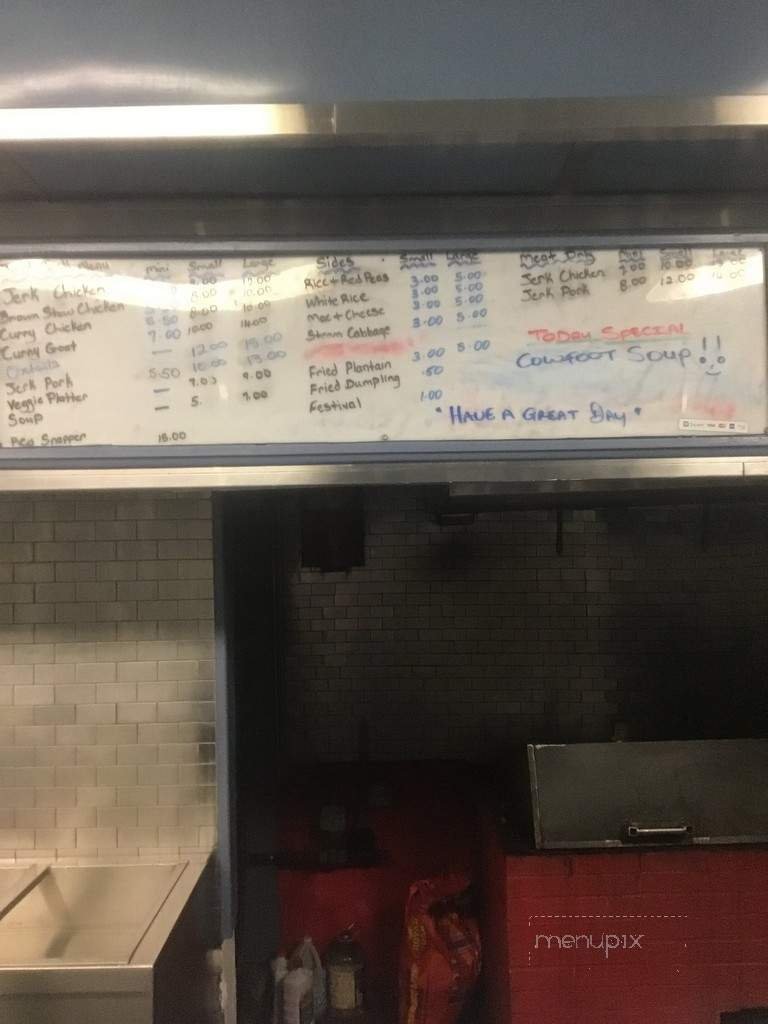 Menu mini Small Large
Jerk Chicken
Brown Stew Chicken
Curry Chicken 5.50
Curry Goat 7.00 10.00 14.00
Oxtails — 12.00 15.00
Jerk Pork 5.50 10.00 13.00
Veggie Platter — 7.00 9.00
Soup — 5. 7.00
Red Snapper 18.00
Sides Small Large
Rice + Red Peas 3.00 5.00
White Rice 3.00 5.00
Mac + Cheese 3.00 5.00
Steam Cabbage 3.00 5.00
Fried Plantain 3.00 5.00
Fried Dumpling .50
Festival 1.00
Meat Only Mini Small Large
Jerk Chicken 7.00 10.00
Jerk Pork 8.00 12.00
TODAY SPECIAL
COWFOOT SOUP !!
"HAVE A GREAT DAY"
menupix